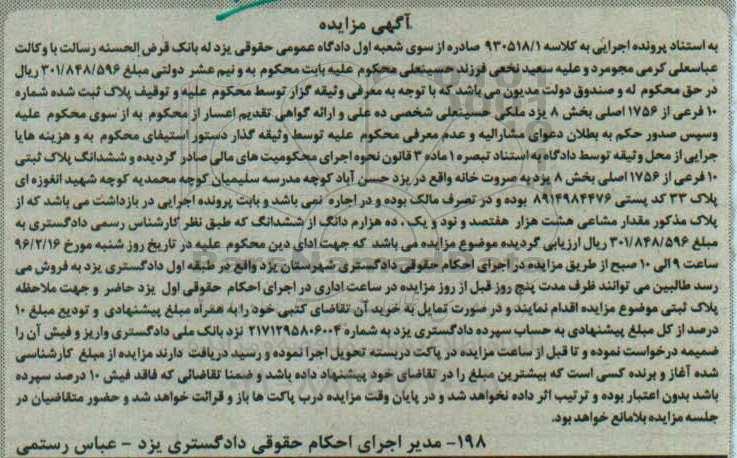 آگهی مزایده
به استناد پرونده اجرایی به کلاسه ۹۳۰۵۱۸/۱ صادره از سوی شعبه اول دادگاه عمومی حقوقی یزد له بانک قرض الحسنه رسالت با وکالت
عباسعلی کرمی مجومرد و علیه سعید نخعی فرزند حسینعلی محکوم علیه بابت محکوم به و نیم عشر دولتی مبلغ ۳۰۱/۸۴۸/۵۹۶ ریال
در حق محکوم له و صندوق دولت مدیون می باشد که با توجه به معرفی وثیقه گزار توسط محکوم علیه و توقیف پلاک ثبت شده شماره
۱۰ فرعی از ۱۷۵۶ اصلی بخش ۸ یزد ملکی حسینعلی شخصی ده علی و ارائه گواهی تقدیم اعسار از محکوم به از سوی محکوم علیه
وسپس صدور حکم به بطلان دعوای مشارالیه و عدم معرفی محکوم علیه توسط وثیقه گذار دستور استیفای محکوم به و هزینه هایا
جرایی از محل وثیقه توسط دادگاه به استناد تبصره ۱ ماده ۳ قانون نحوه اجرای محکومیت های مالی صادر گردیده و ششدانگ پلاک ثبتی
۱۰ فرعی از ۱۷۵۶ اصلی بخش ۸ یزد به صروت خانه واقع در یزد حسن آباد کوچه مدرسه سلیمیان کوچه محمدیه کوچه شهید انغوزه ای
پلاک ۳۳ کد پستی ۸۹۱۴۹۸۴۴۷۶ بوده و در تصرف مالک بوده و در اجاره نمی باشد و بابت پرونده اجرایی در بازداشت می باشد که از
پلاک مذکور مقدار مشاعی هشت هزار هفتصد و نود و یک ، ده هزارم دانگ از ششدانگ که طبق نظر کارشناس رسمی دادگستری به
مبلغ ۳۰۱/۸۴۸/۵۹۶ ریال ارزیابی گردیده موضوع مزایده می باشد که جهت ادای دین محکوم علیه در تاریخ روز شنبه مورخ ۹۶/۲/۱۶
ساعت ۹ الی ۱۰ صبح از طریق مزایده در اجرای احکام حقوقی دادگستری شهرستان یزد واقع در طبقه اول دادگستری یزد به فروش می
رسد طالبین می توانند ظرف مدت پنج روز قبل از روز مزایده در ساعت اداری در اجرای احکام حقوقی اول یزد حاضر و جهت ملاحظه
پلاک ثبتی موضوع مزایده اقدام نمایند و در صورت تمایل به خرید آن تقاضای کتبی خود را به همراه مبلغ پیشنهادی و تودیع مبلغ ۱۰
درصد از کل مبلغ پیشنهادی به حساب سپرده دادگستری یزد به شماره ۲۱۷۱۲۹۵۸۰۶۰۰۴ نزد بانک ملی دادگستری واریز و فیش آن را
ضمیمه درخواست نموده و تا قبل از ساعت مزایده در پاکت دربسته تحویل اجرا نموده و رسید دریافت دارند مزایده از مبلغ کارشناسی
شده آغاز و برنده کسی است که بیشترین مبلغ را در تقاضای خود پیشنهاد داده باشد و ضمنا تقاضائی که فاقد فیش ۱۰ درصد سپرده
باشد بدون اعتبار بوده و ترتیب اثر داده نخواهد شد و در پایان وقت مزایده درب پاکت ها باز و قرائت خواهد شد و حضور متقاضیان در
جلسه مزایده بلامانع خواهد بود.
۱۹۸- مدیر اجرای احکام حقوقی دادگستری یزد - عباس رستمی